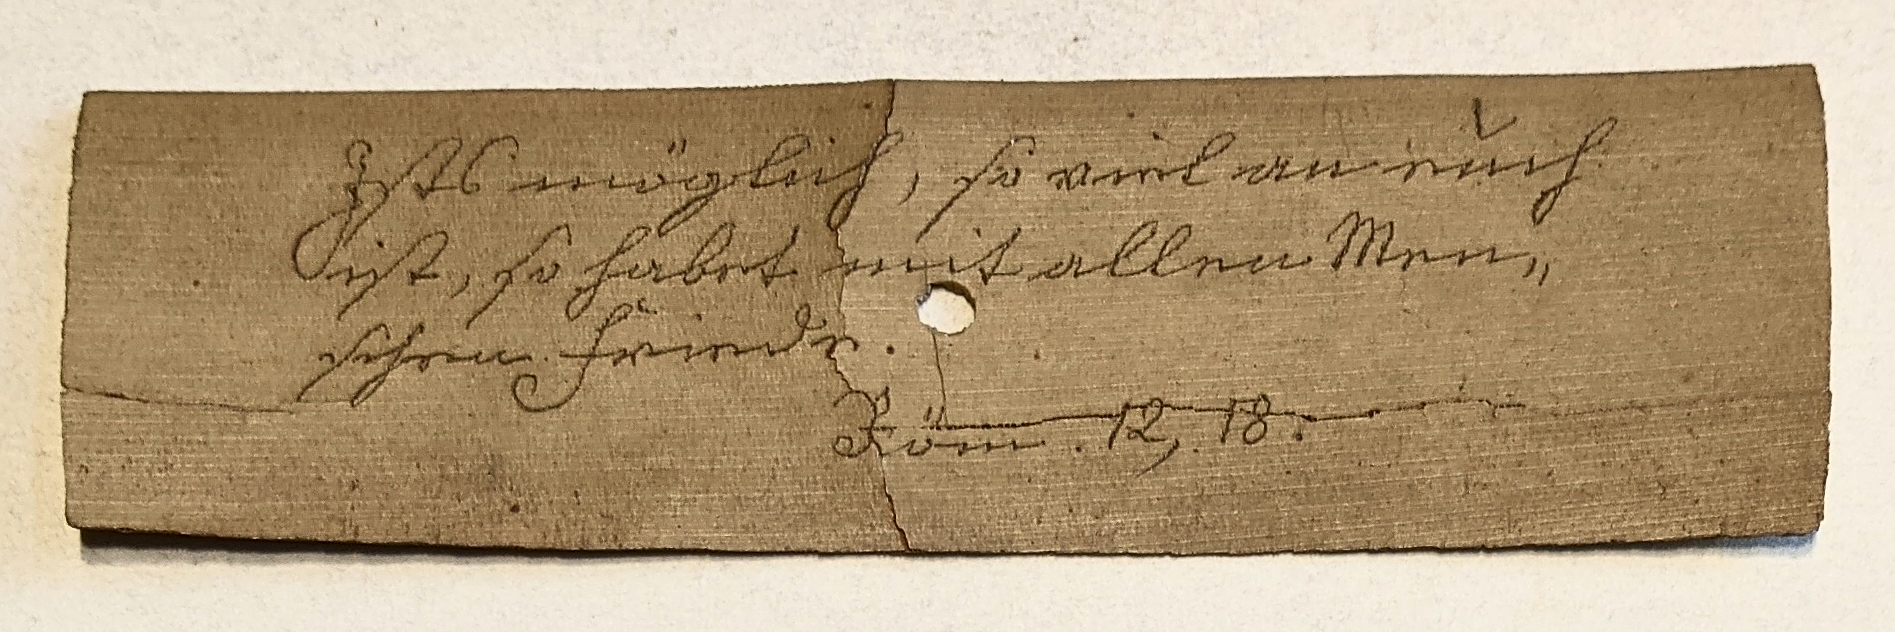 Ists möglich, so viel an euch
ist, so habet mit allen Men„
schen Friede.
Röm. 12, 18.